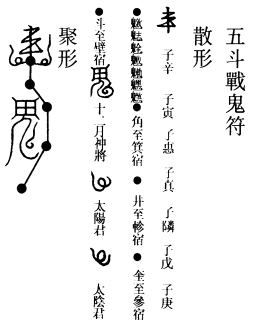 五斗戰鬼符
散形
子辛 子寅 子惠 子真 子隣 子戊 子庚
●角至箕宿 ●井至軫宿 ●奎至參宿
●斗至壁宿 十二月神將 太陽君 太陰君
聚形